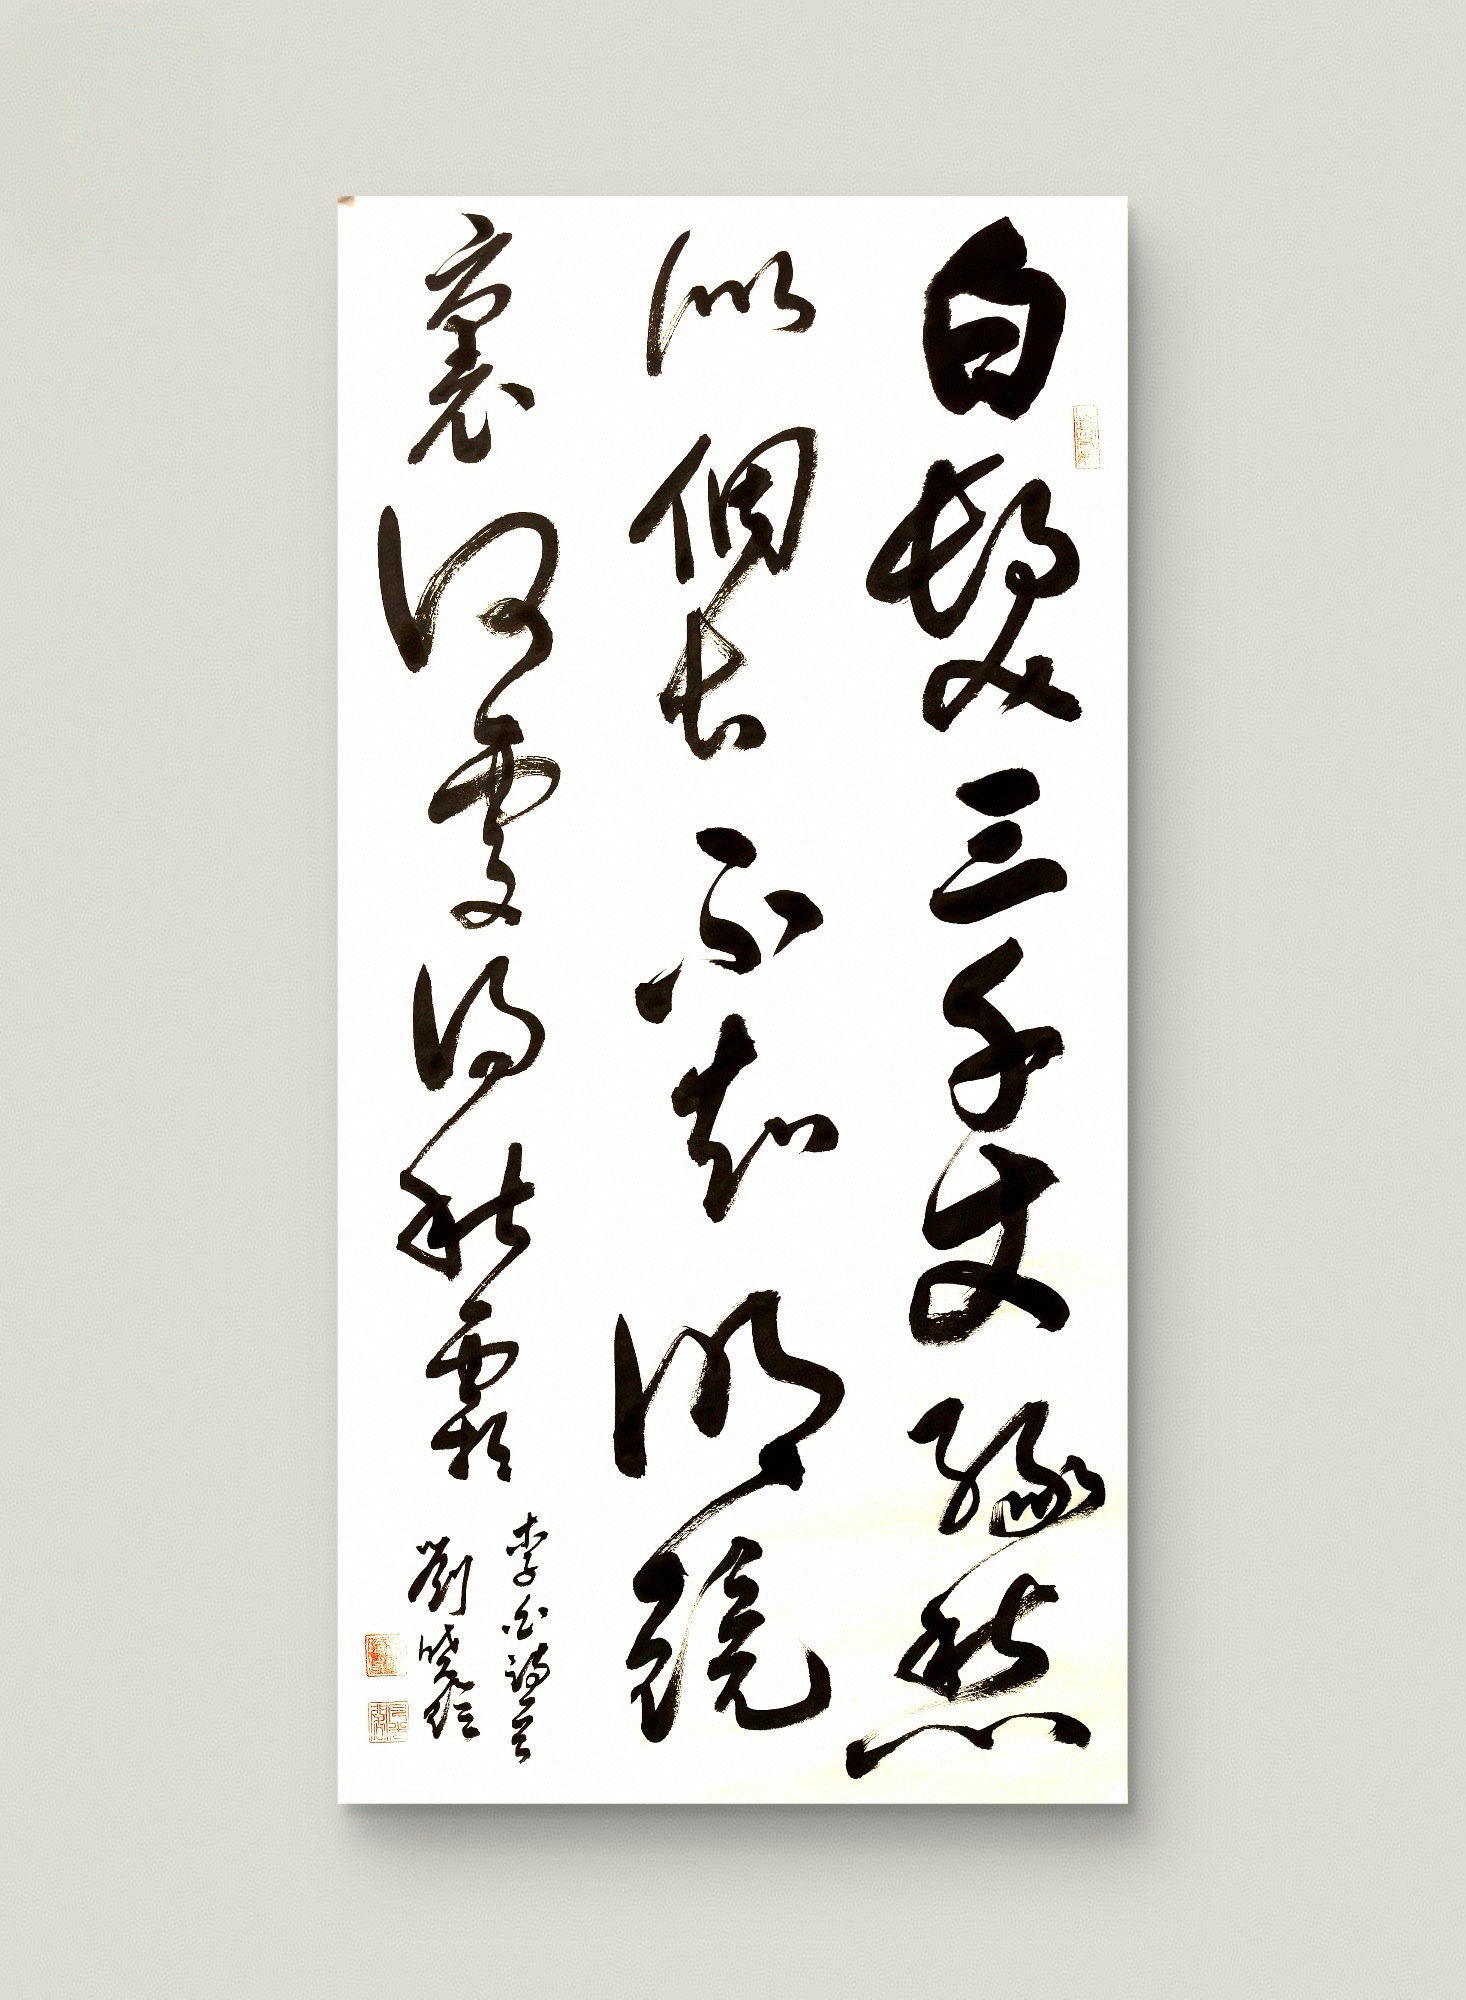 白髮三千丈緣愁
似個長不知明鏡
裏何處得秋霜
李白詩一首
劉曉